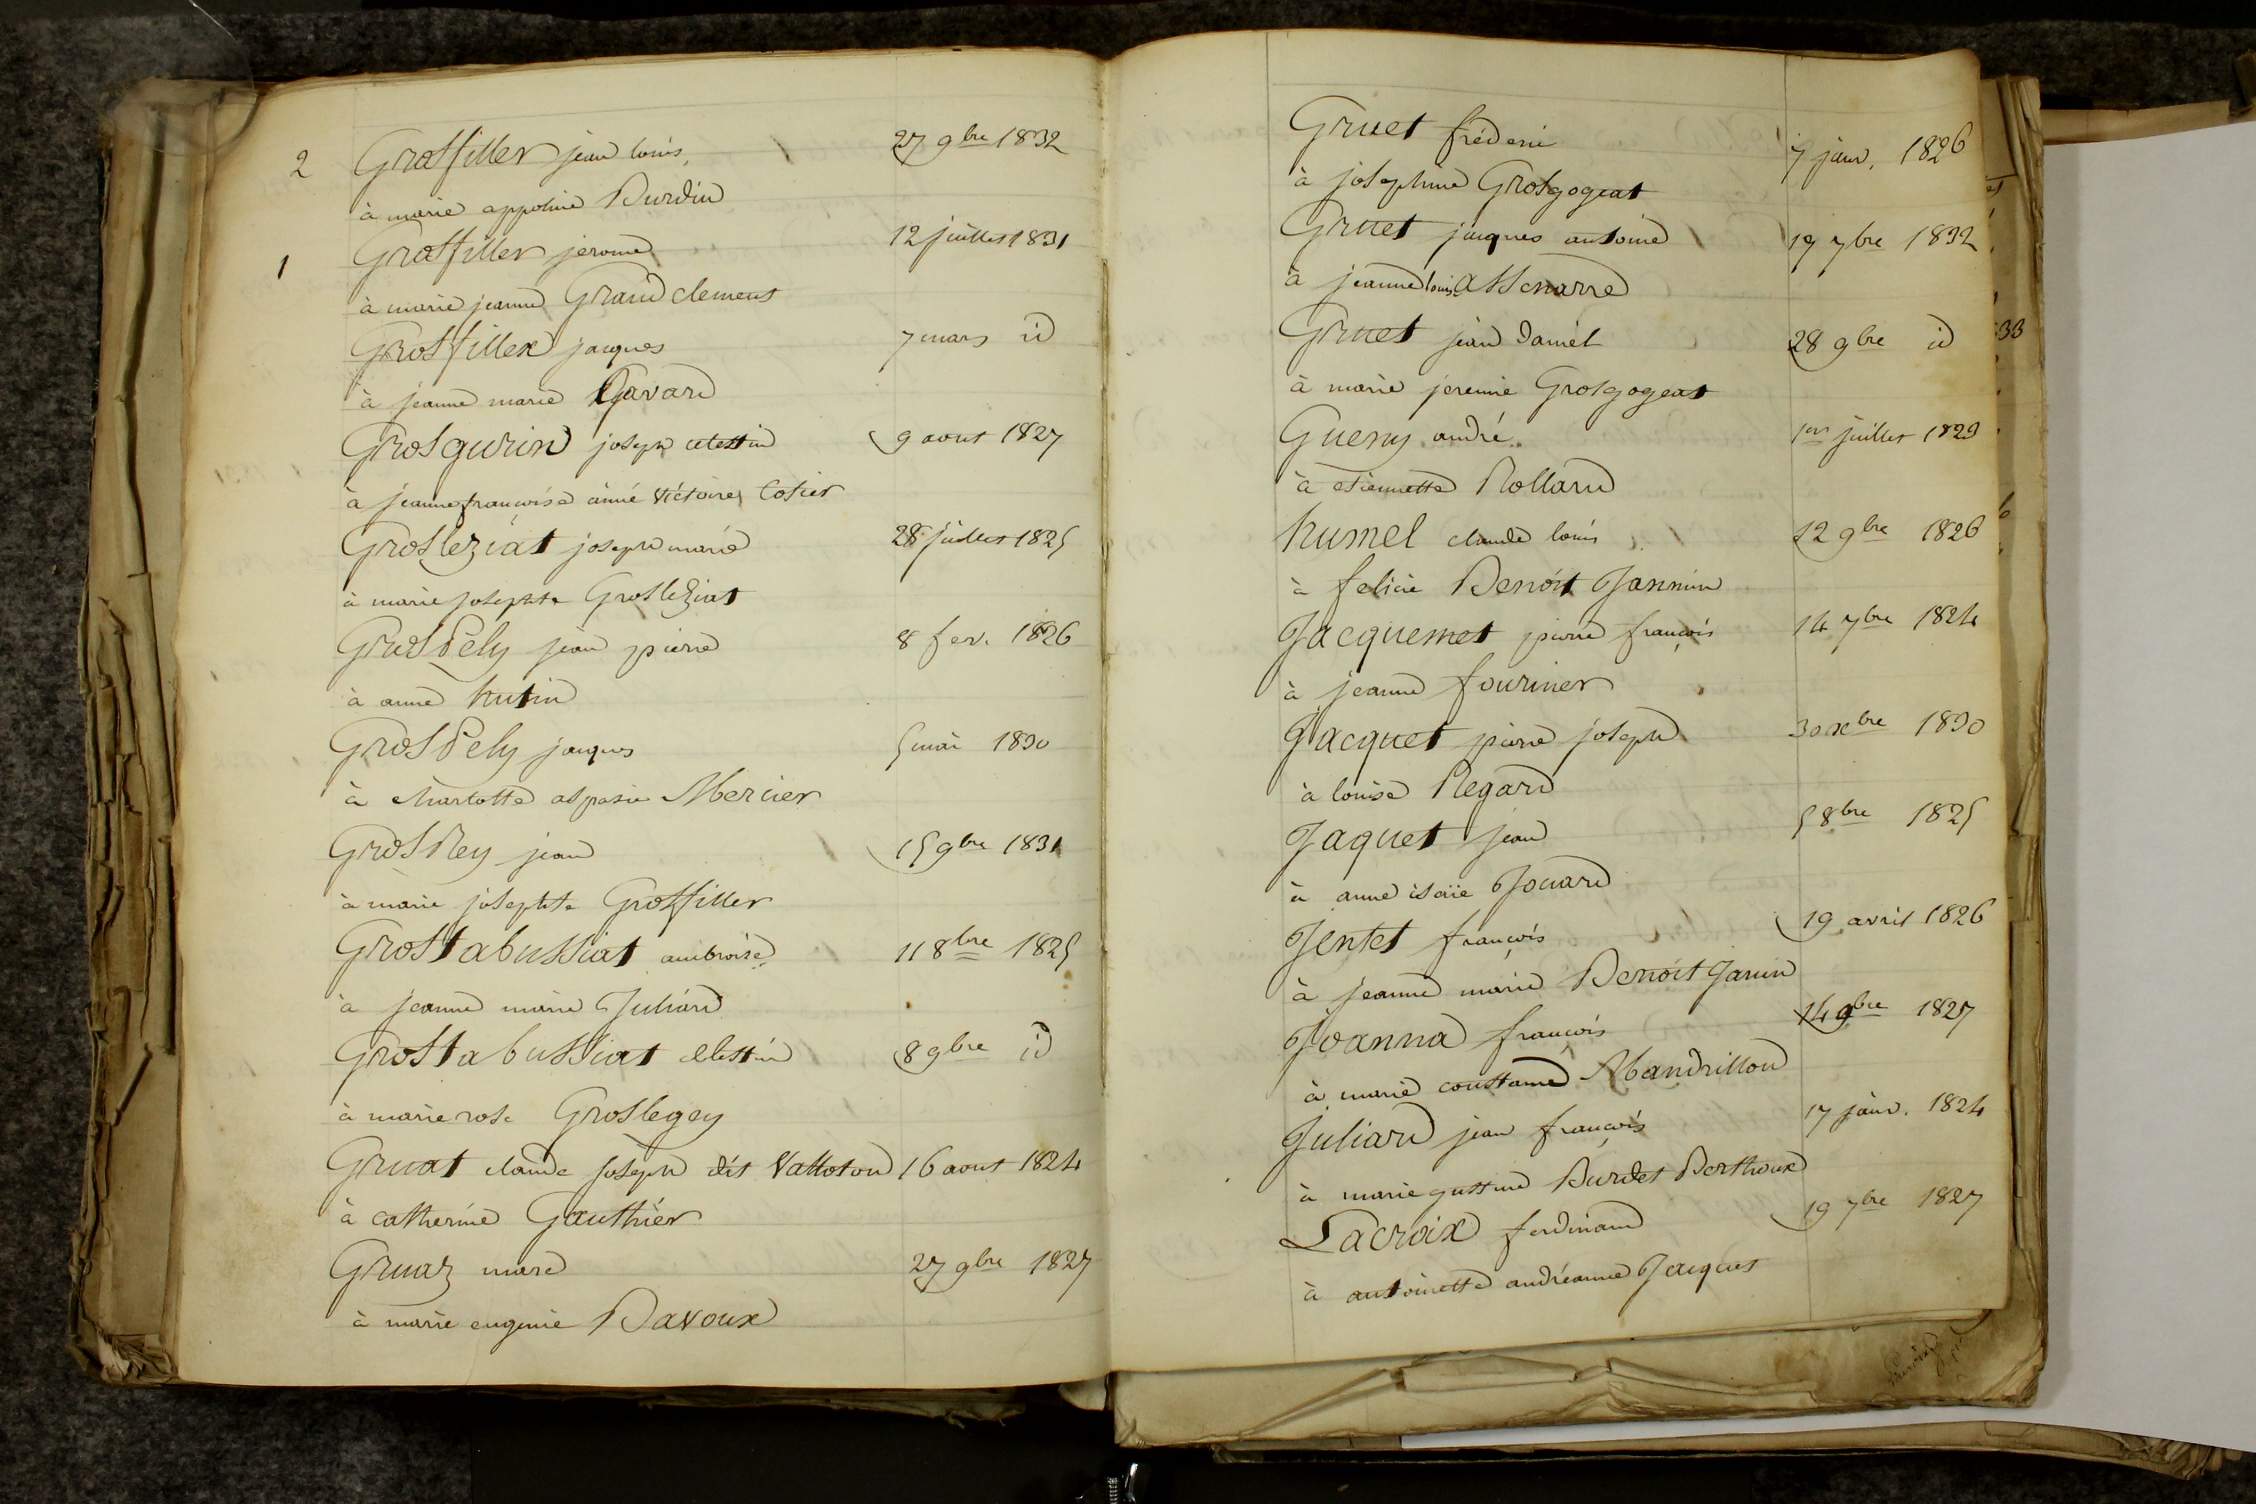 2 Grosfiller jean louis 27 9bre 1832
à marie appoline Burdin
1 Grosfiller jerome 12 juillet 1831
à marie jeanne Grandclement
Grosfillex jacques 7 mars id
à jeanne marie Gavard
Grosgurin joseph celestin 9 aout 1827
à jeanne françoise aimé victoire Cotier
Grosleziat joseph marie 28 juillet 1825
à marie josephte Grosleziat
GrosPely jean pierre 8 fev. 1826
à anne hutin
GrosPely jacques 5 mai 1830
à charlotte aspasie Mercier
GrosRey jean 15 9bre 1831
à marie josephte Grosfiller
Grostabussiat ambroise 11 8bre 1825
à jeanne marie Juliard
Grostabussiat celestin 8 9bre id
à marie rose Groslegey
Gruat claude joseph dit Vattoton 16 aout 1824
à catherine Gauthier
Gruaz marc 27 9bre 1827
à marie eugenie Davoux
Gruet fréderic 7 janv. 1826
à josephine Grosgogeat
Gruet jacques antoine 19 7bre 1832
à jeanne louise Assenarre
Gruet jean daniel 28 9bre id
à marie jeremie Grosgogeat
Gueny andré 1er juillet 1829
à etiennette Rolland
humel claude louis 12 9bre 1826
à felicie Benoit Jannin
Jacquemet pierre françois 14 7bre 1824
à jeanne fournier
Jacquet pierre joseph 30 xbre 1830
à louise Regard
Jaquet jean 5 8bre 1825
à anne isaïe Jouard
Jentet françois 19 avril 1826
à jeanne marie Benoit Janin
Joanna françois 14 9bre 1827
à marie constance Mandrillon
Juliard jean françois 17 janv. 1824
à marie gustine Burdet Berthoux
Lacroix ferdinand 19 7bre 1827
à antoinette andréanne Jacques
33